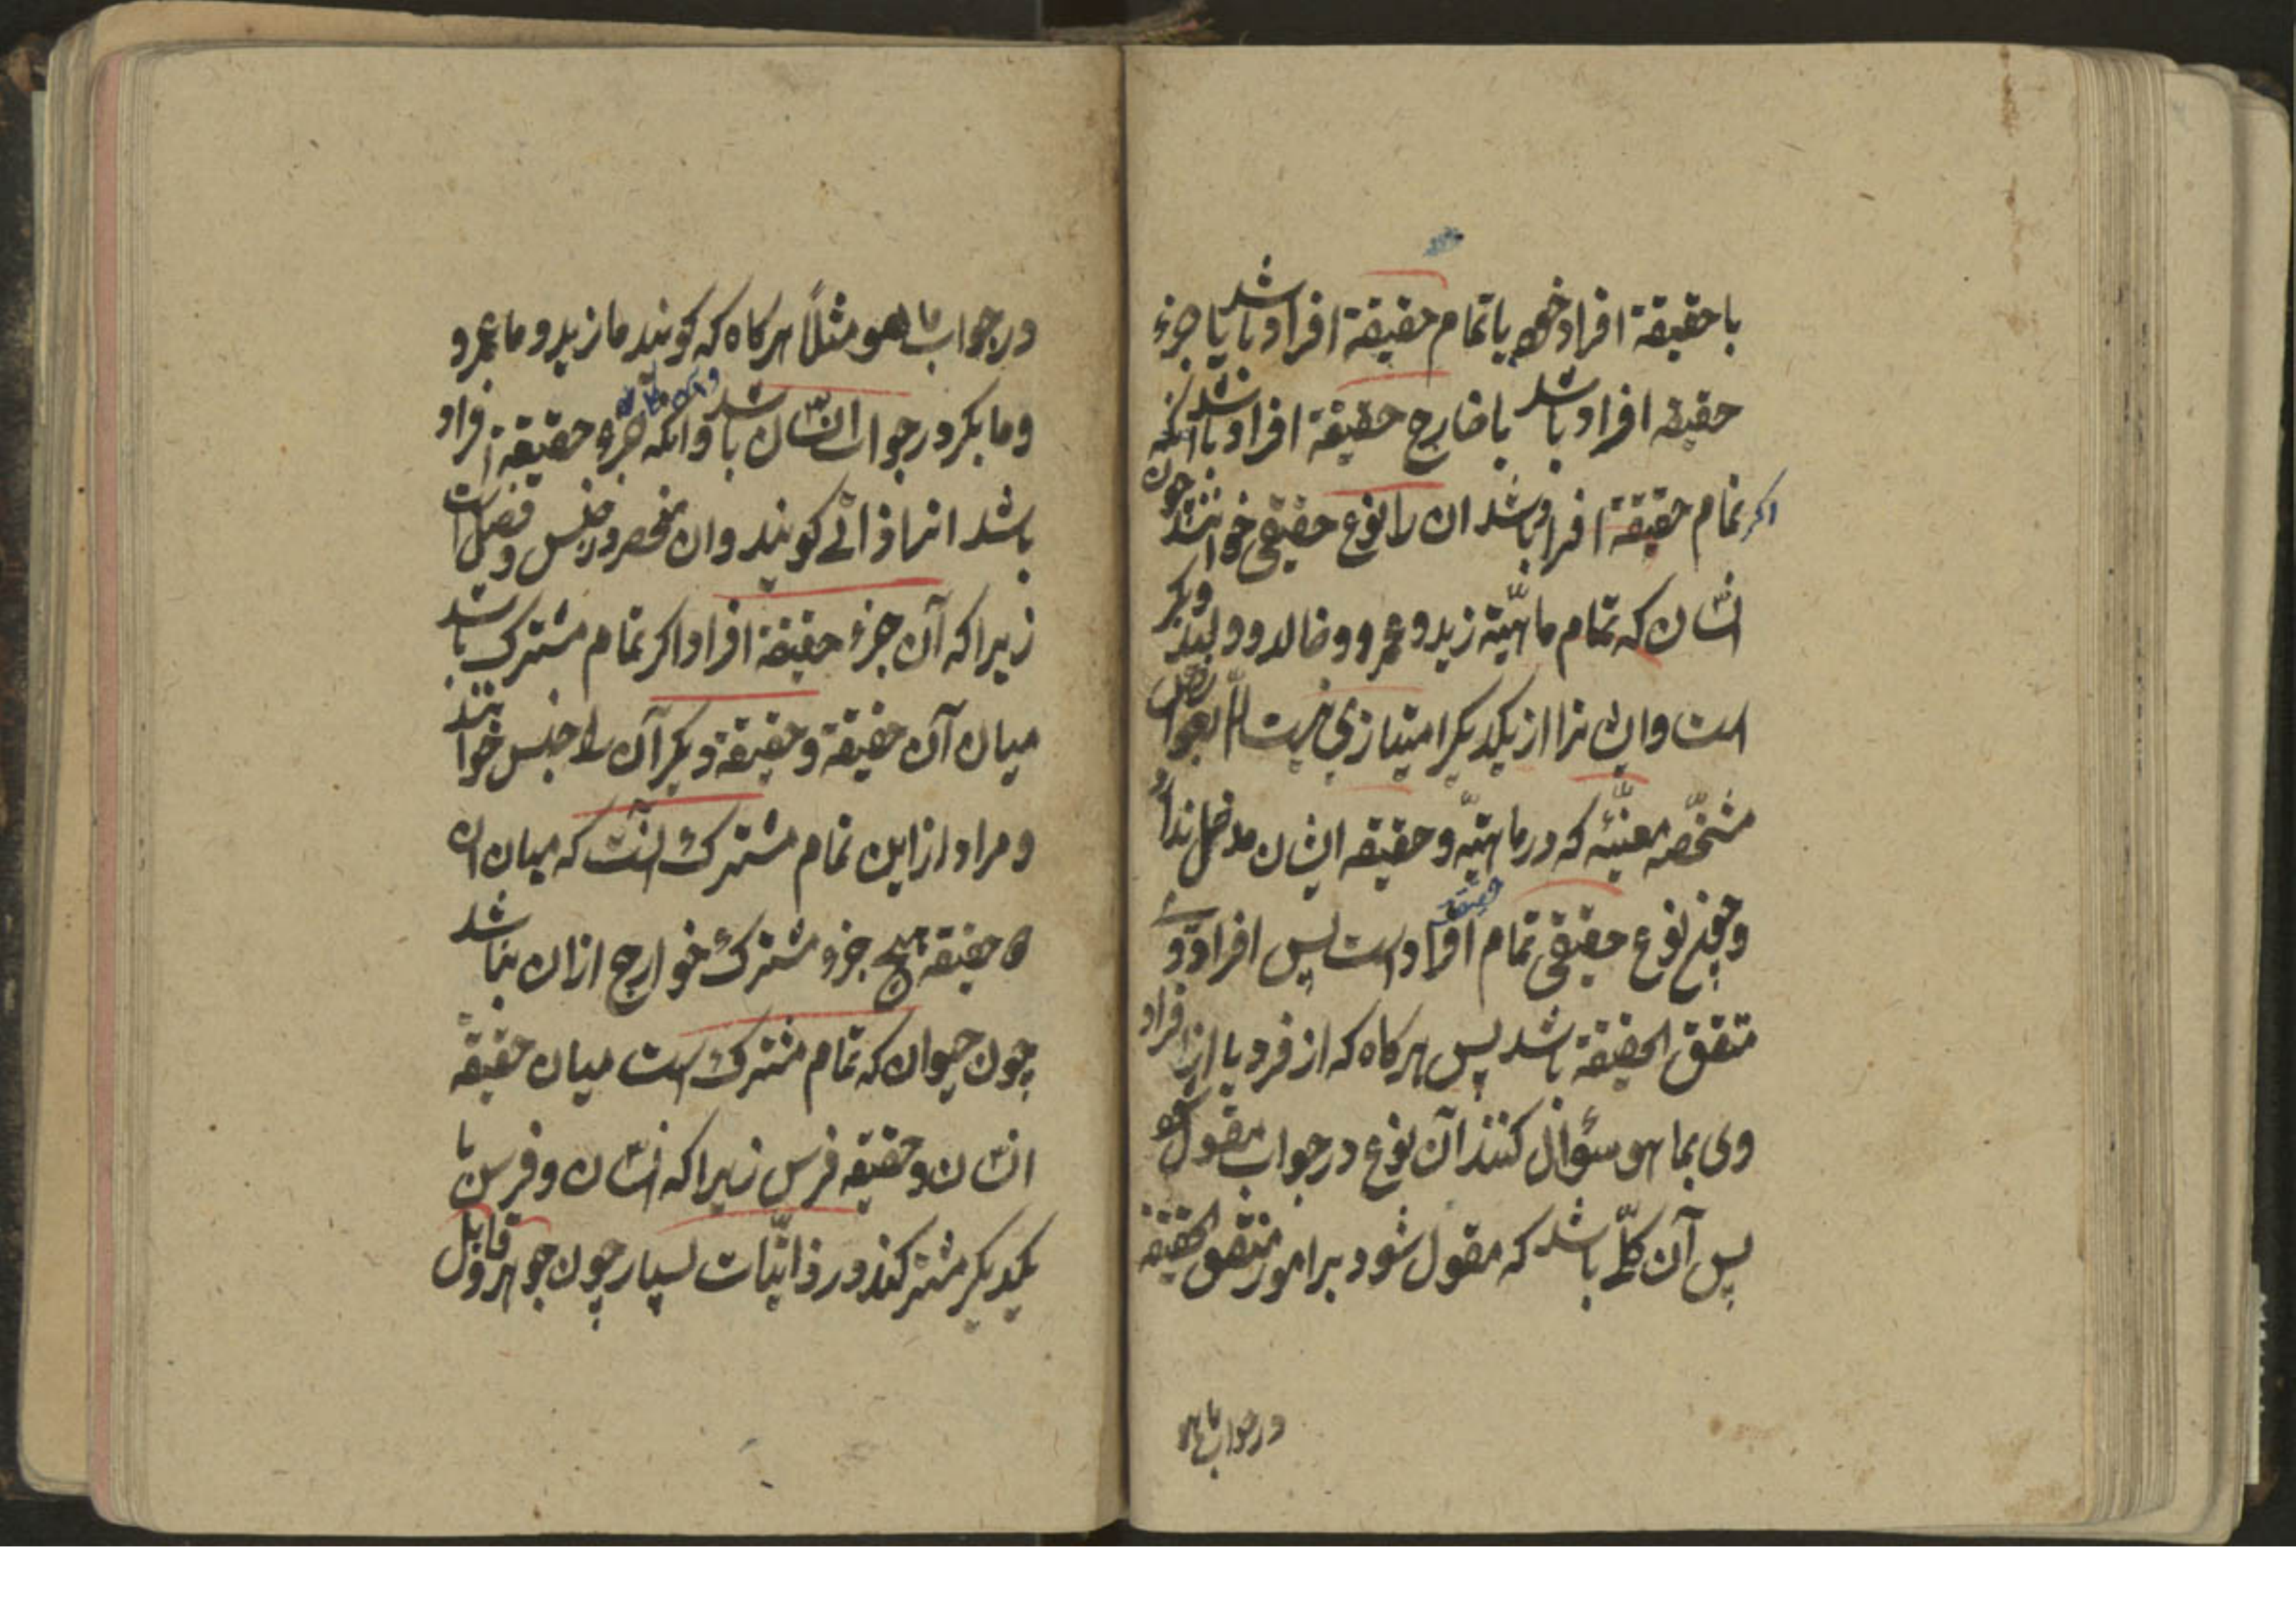 با حقیقة افراد خود یا تمام حقیقة افراد باشد یا جزء
حقیقه افراد باشد یا خارج حقیقة افراد باشد آنکه
اکر تمام حقیقة افراد باشد ان را نوع حقیقی خوانند چون
انسان که تمام ماهیّة زید و عمرو و خالد و ولید و بکر
است و ایشانرا از یکدیکر امتیازی نیست الّا بعوارض
مشخّصه معیّنه که در ماهیّة و حقیقه ایشان مدخل ندارد
و چون نوع حقیقی تمام حقیقة افراد است پس افراد وی
متفق الحقیقة باشد پس هرکاه که از فرد یا از افراد
وی بما هو سؤال کنند آن نوع در جواب مقول شود
پس آن کلّی باشد که مقول شود بر امور متفق الحقیقة
در جواب ما هو
در جواب ما هو مثلاً هرکاه که کویند ما زید و ما عمرو
و ما بکر در جواب انسان باشد و انکه جزء حقیقة افراد
باشد انرا ذاتی کویند و ان منحصر در جنس و فصل است
زیرا که آن جزء حقیقة افراد اکر تمام مشترک باشد
میان آن حقیقة و حقیقة دیکر آن را جنس خوانند
و مراد از این تمام مشترک آنست که میان ان
ه حقیقة هیچ جزء مشترک خوارج از ان نباشد
چون حیوان که تمام مشترک است میان حقیقة
انسان و حقیقه فرس زیرا که انسان و فرس با
یکدیکر مشترکند در ذاتیّات بسیار چون جوهر و قابل